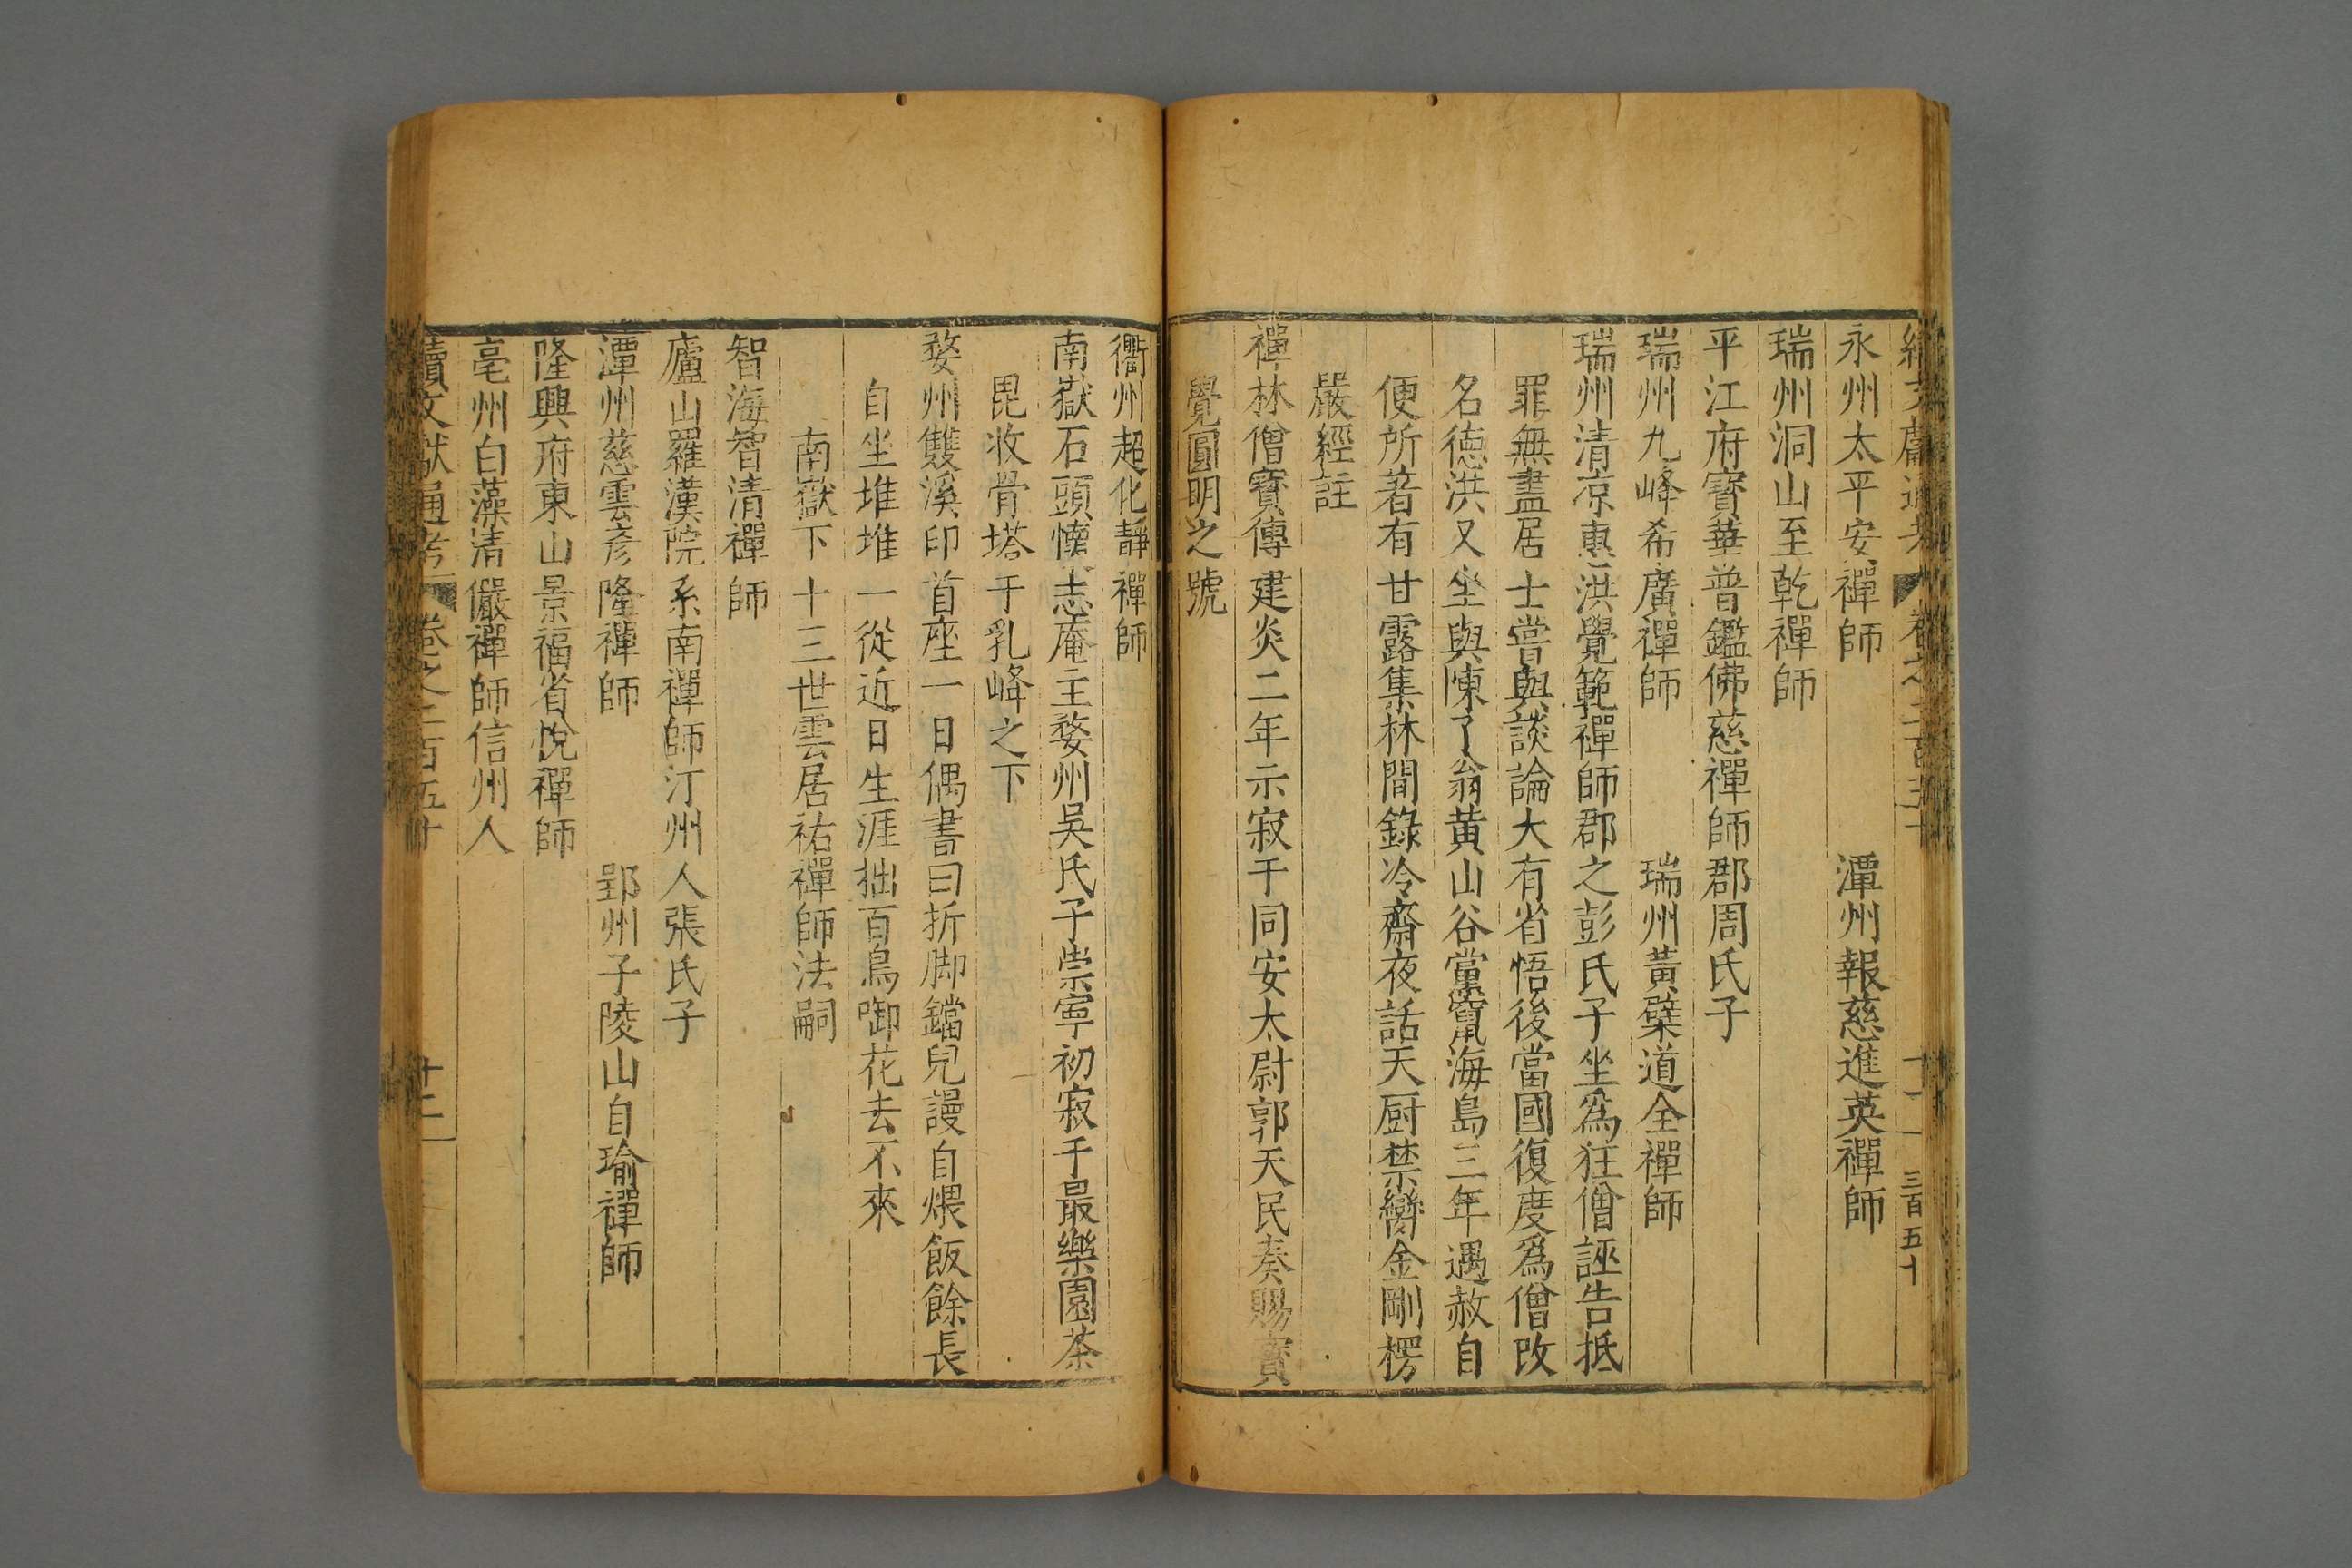 永州太平安禪師 潭州報慈進英禪師
瑞州洞山至乾禪師
平江府寳華普鑑佛慈禪師郡周氏子
瑞州九峰希廣禪師 瑞州黃檗道全禪師
瑞州清凉惠洪覺範禪師郡之彭氏子坐為狂僧誣告抵
罪無盡居士嘗與談論大有省悟後當國復度爲僧改
名德洪又坐與陳了翁黃山谷黨竄海島三年遇赦自
便所著有甘露集林間錄冷齋夜話天厨禁臠金剛楞
嚴經註
禪林僧寳傳建炎二年示寂于同安太尉郭天民奏賜寳
覺圓明之號
衢州超化靜禪師
南嶽石頭懷志庵主婺州吳氏子崇寧初寂于最樂園茶
毘收骨塔于乳峰之下
婺州雙溪印首座一日偶書曰折脚鐺兒謾自煨飯餘長
自坐堆堆一從近日生涯拙百鳥啣花去不來
南嶽下十三世雲居祐禪師法嗣
智海智清禪師
廬山羅漢院系南禪師汀州人張氏子
潭州慈雲彦隆禪師 郢州子陵山自瑜禪師
隆興府東山景福省悅禪師
亳州白藻清儼禪師信州人
續文獻通考 卷之二百五十 十二